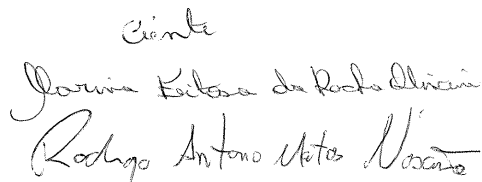 Ciente
Marina Feitosa da Rocha Oliveira
Rodrigo Antonio Matos